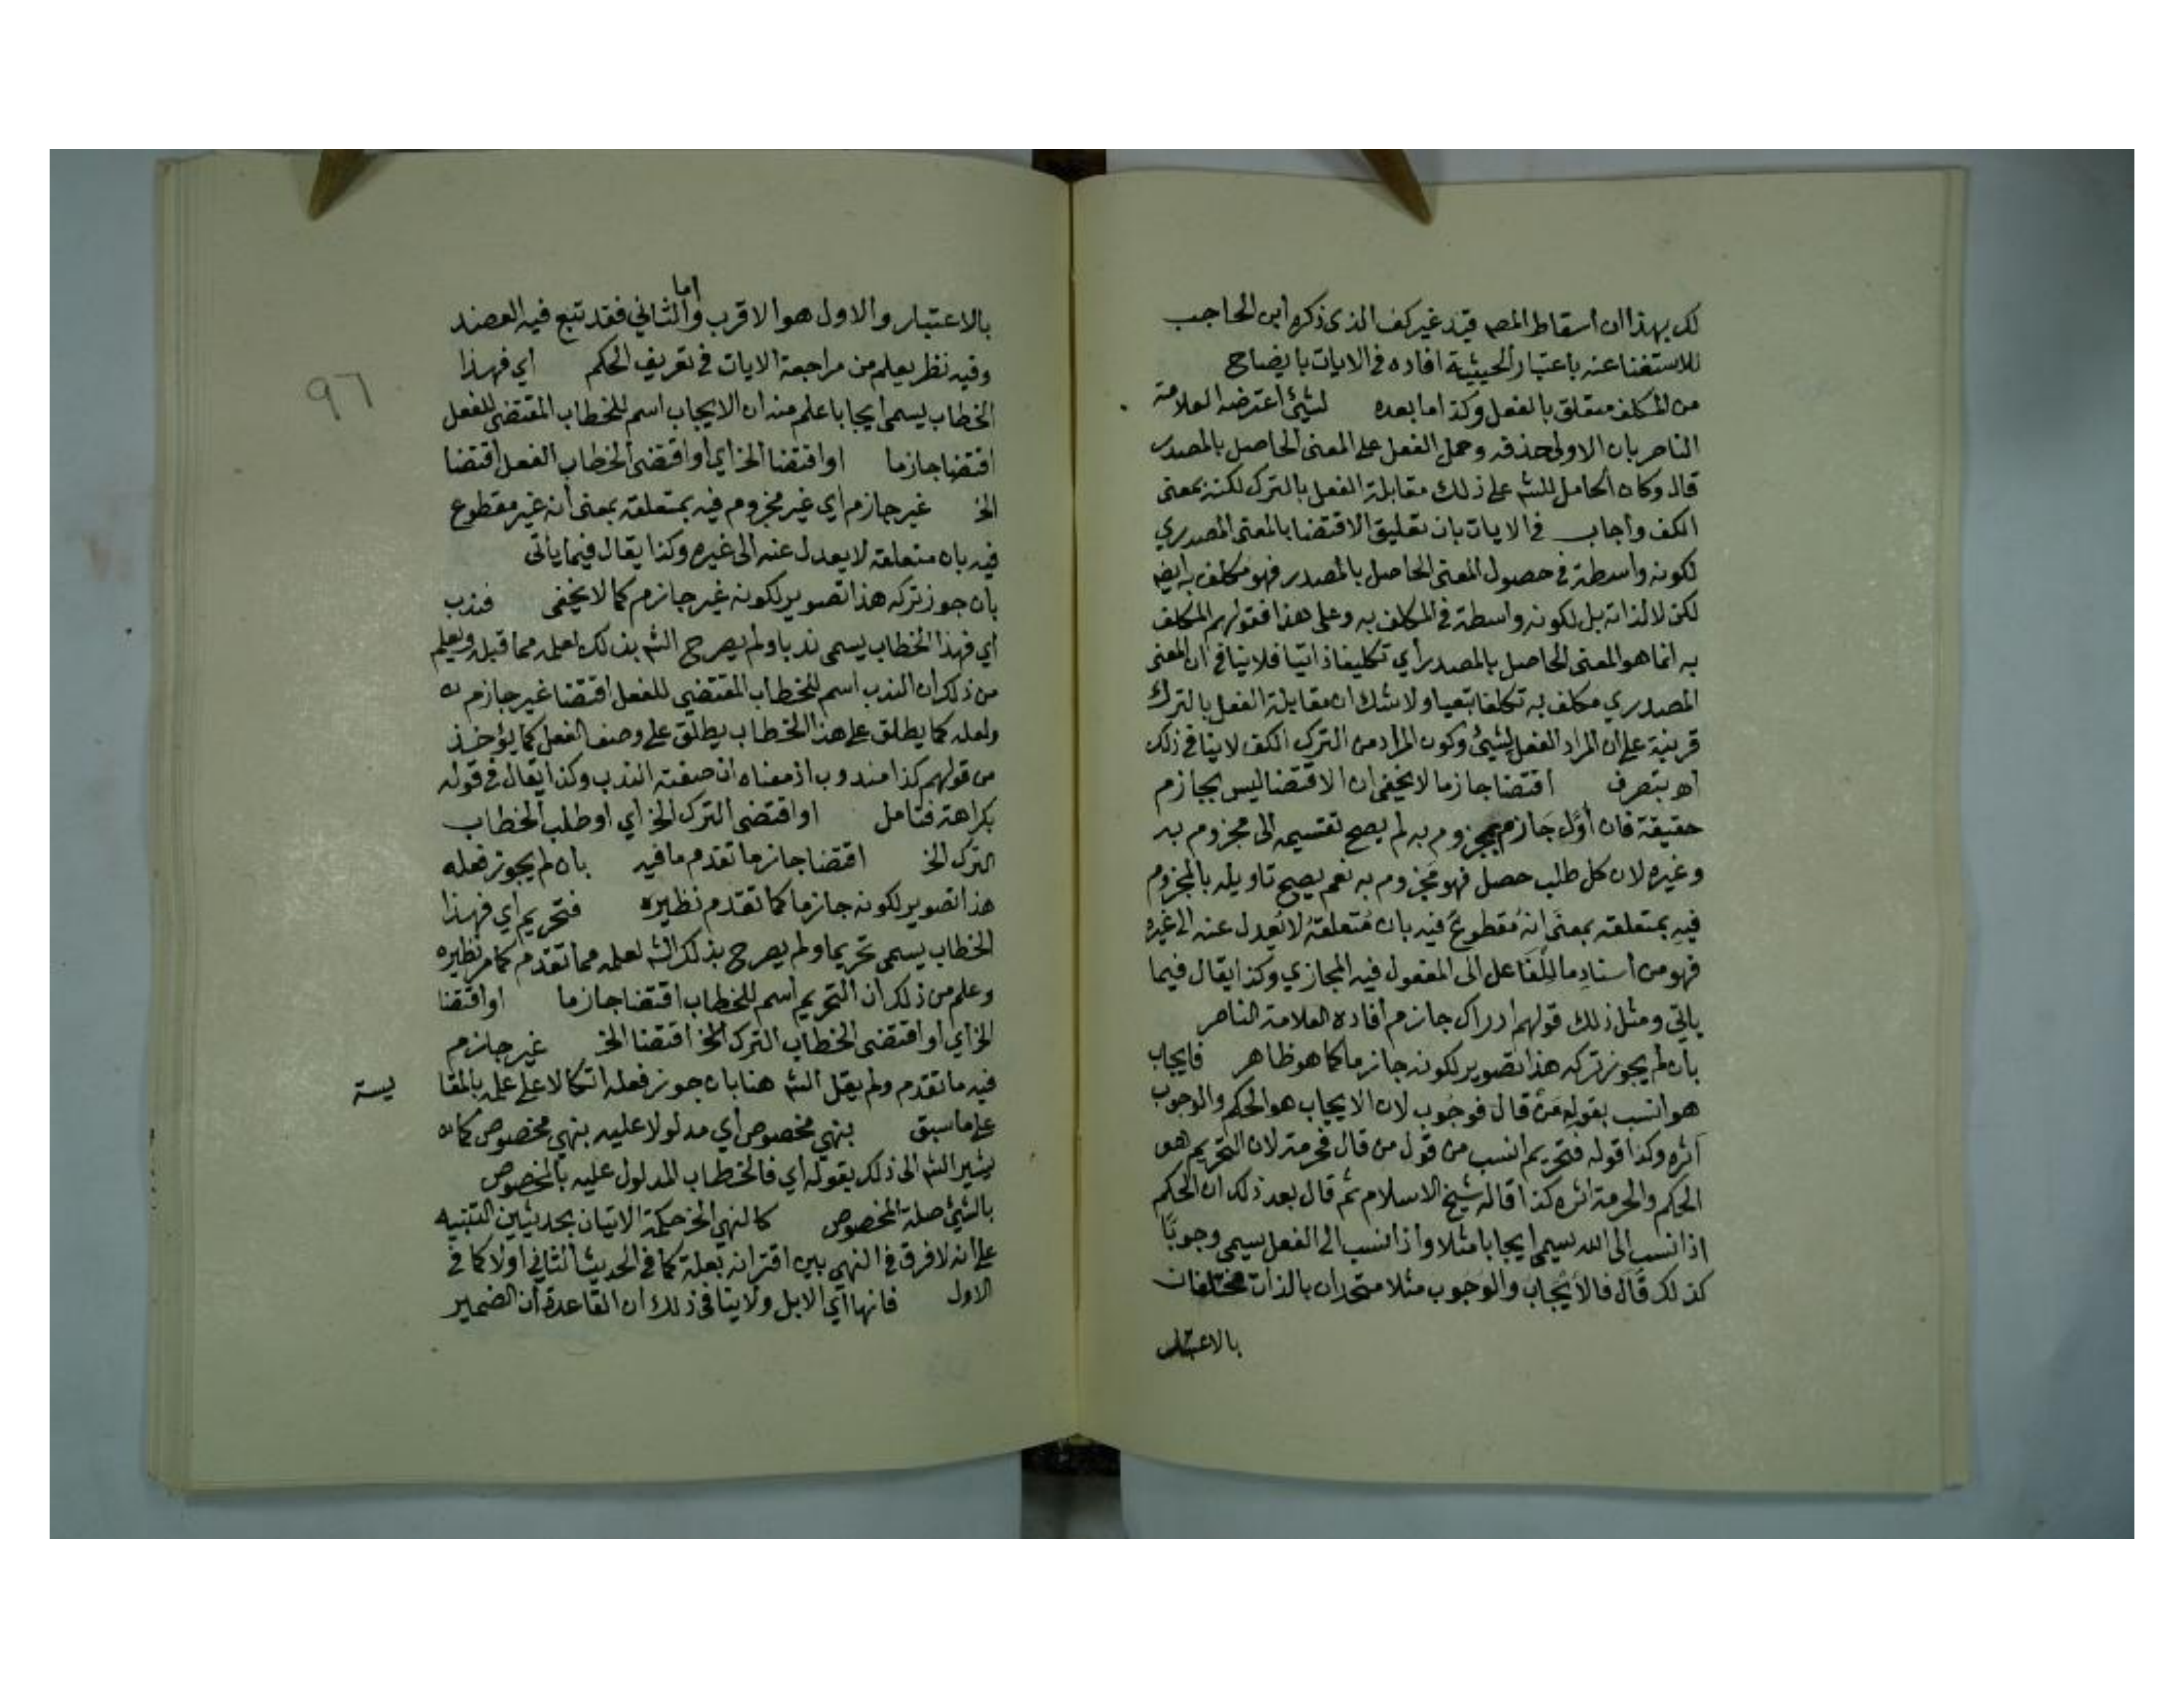 لك بهذا ان اسقاط المصه قيد غير كف الذى ذكره ابن الحاجب
للاستغنا عنه باعتبار الحيثية افاده في الايات بايضاح
من المكلف متعلق بالفعل وكذا ما بعده لشيئ اعترضه العلامة
الناصر بان الاولى حذفه وحمل الفعل على المعنى الحاصل بالمصدر
قال وكان الحامل للشه على ذلك مقابلة الفعل بالترك لكنه بمعنى
الكف واجاب في الايات بان تعليق الاقتضا بالمعنى المصدري
لكونه واسطة في حصول المعنى الحاصل بالمصدر فهو مكلف به ايضه
لكن لا لذاته بل لكونه واسطة في المكلف به وعلى هذا فقولهم المكلف
به انما هو المعنى الحاصل بالمصدر أي تكليفا ذاتيا فلا ينافى ان المعنى
المصدري مكلف به تكلفا تبعيا ولا شك ان مقابلة الفعل بالترك
قرينة على ان المراد الفعل لشيئ وكون المراد من الترك الكف لا ينافي ذلك
اه بتصرف اقتضا جازما لا يخفى ان الاقتضا ليس بجازم
حقيقة فان أوّل جازم بمجزوم به لم يصح تقسيمه الى مجزوم به
وغيره لان كل طلب حصل فهو مجزوم به نعم يصح تاويله بالمجزوم
فيه بمتعلقه بمعنى انه مقطوع فيه بان متعلقه لا يعدل عنه الى غيره
فهو من أسناد ما للفاعل الى المفعول فيه المجازي وكذا يقال فيما
ياتي ومثل ذلك قولهم ادراك جازم أفاده العلامة الناصر
بان لم يجوز تركه هذا تصوير لكونه جازما كما هو ظاهر فايجاب
هو انسب بقوله من قال فوجوب لان الايجاب هو الحكم والوجوب
اثره وكذا قوله فتحريم انسب من قول من قال فحرمة لان التحريم هو
الحكم والحرمة اثره كذا قاله شيخ الاسلام ثم قال بعد ذلك ان الحكم
اذا نسب الى الله سيمى ايجابا مثلا واذا نسب الى الفعل سيمى وجوبا
كذلك قال فالايجاب والوجوب مثلا متحدان بالذات مختلفان
بالاعتبار
بالاعتبار والاول هو الاقرب واما الثاني فقد تبع فيه العضد
وفيه نظر يعلم من مراجعة الايات في تعريف الحكم اي فهذا
٩٦
الخطاب يسمى ايجابا علم منه ان الايجاب اسم للخطاب المقتضى للفعل
اقتضا جازما او اقتضا الخ اي او اقتضى الخطاب الفعل اقتضا
الخ غير جازم اي غير مجزوم فيه بمتعلقه بمعنى أنه غير مقطوع
فيه بان متعلقه لا يعدل عنه الى غيره وكذا يقال فيما ياتى
بان جوز تركه هذا تصوير لكونه غير جازم كما لا يخفى فندب
أي فهذا الخطاب يسمى ندبا ولم يصرح الشه بذلك لعلمه مما قبله ويعلم
من ذلك ان الندب اسم للخطاب المقتضي للفعل اقتضا غير جازم
ولعله كما يطلق على هذا الخطاب يطلق على وصف الفعل كما يؤخذ
من قولهم كذا مندوب اذ معناه ان صفته الندب وكذا يقال في قوله
بكراهة فتامل او اقتضى الترك الخ اي او طلب الخطاب
الترك الخ اقتضا جازما تقدم ما فيه بان لم يجوز فعله
هذا تصوير لكونه جازما كما تقدم نظيره فتحريم اي فهذا
الخطاب يسمى تحريما ولم يصرح بذلك الشه لعلمه مما تقدم كما مر نظيره
وعلم من ذلك ان التحريم أسم للخطاب اقتضا جازما او اقتضا
الخ أي او اقتضى الخطاب الترك الخ اقتضا الخ غير جازم
فيه ما تقدم ولم يقل الشه هنا بان جوز فعله اتكالا على علمه بالمقا
يسة
على ما سبق بنهي مخصوص أي مدلولا عليه بنهي مخصوص كما
يشير الشه الى ذلك بقوله أي فالخطاب المدلول عليه بالمخصوص
بالشيئ صلة المخصوص كالنهي الخ حكمة الاتيان بحديثين التنبيه
على انه لا فرق في النهي بين اقترانه بعلة كما في الحديث الثاني اولا كما في
الاول فانها اي الابل ولا ينافى ذلك ان القاعدة ان الضمير